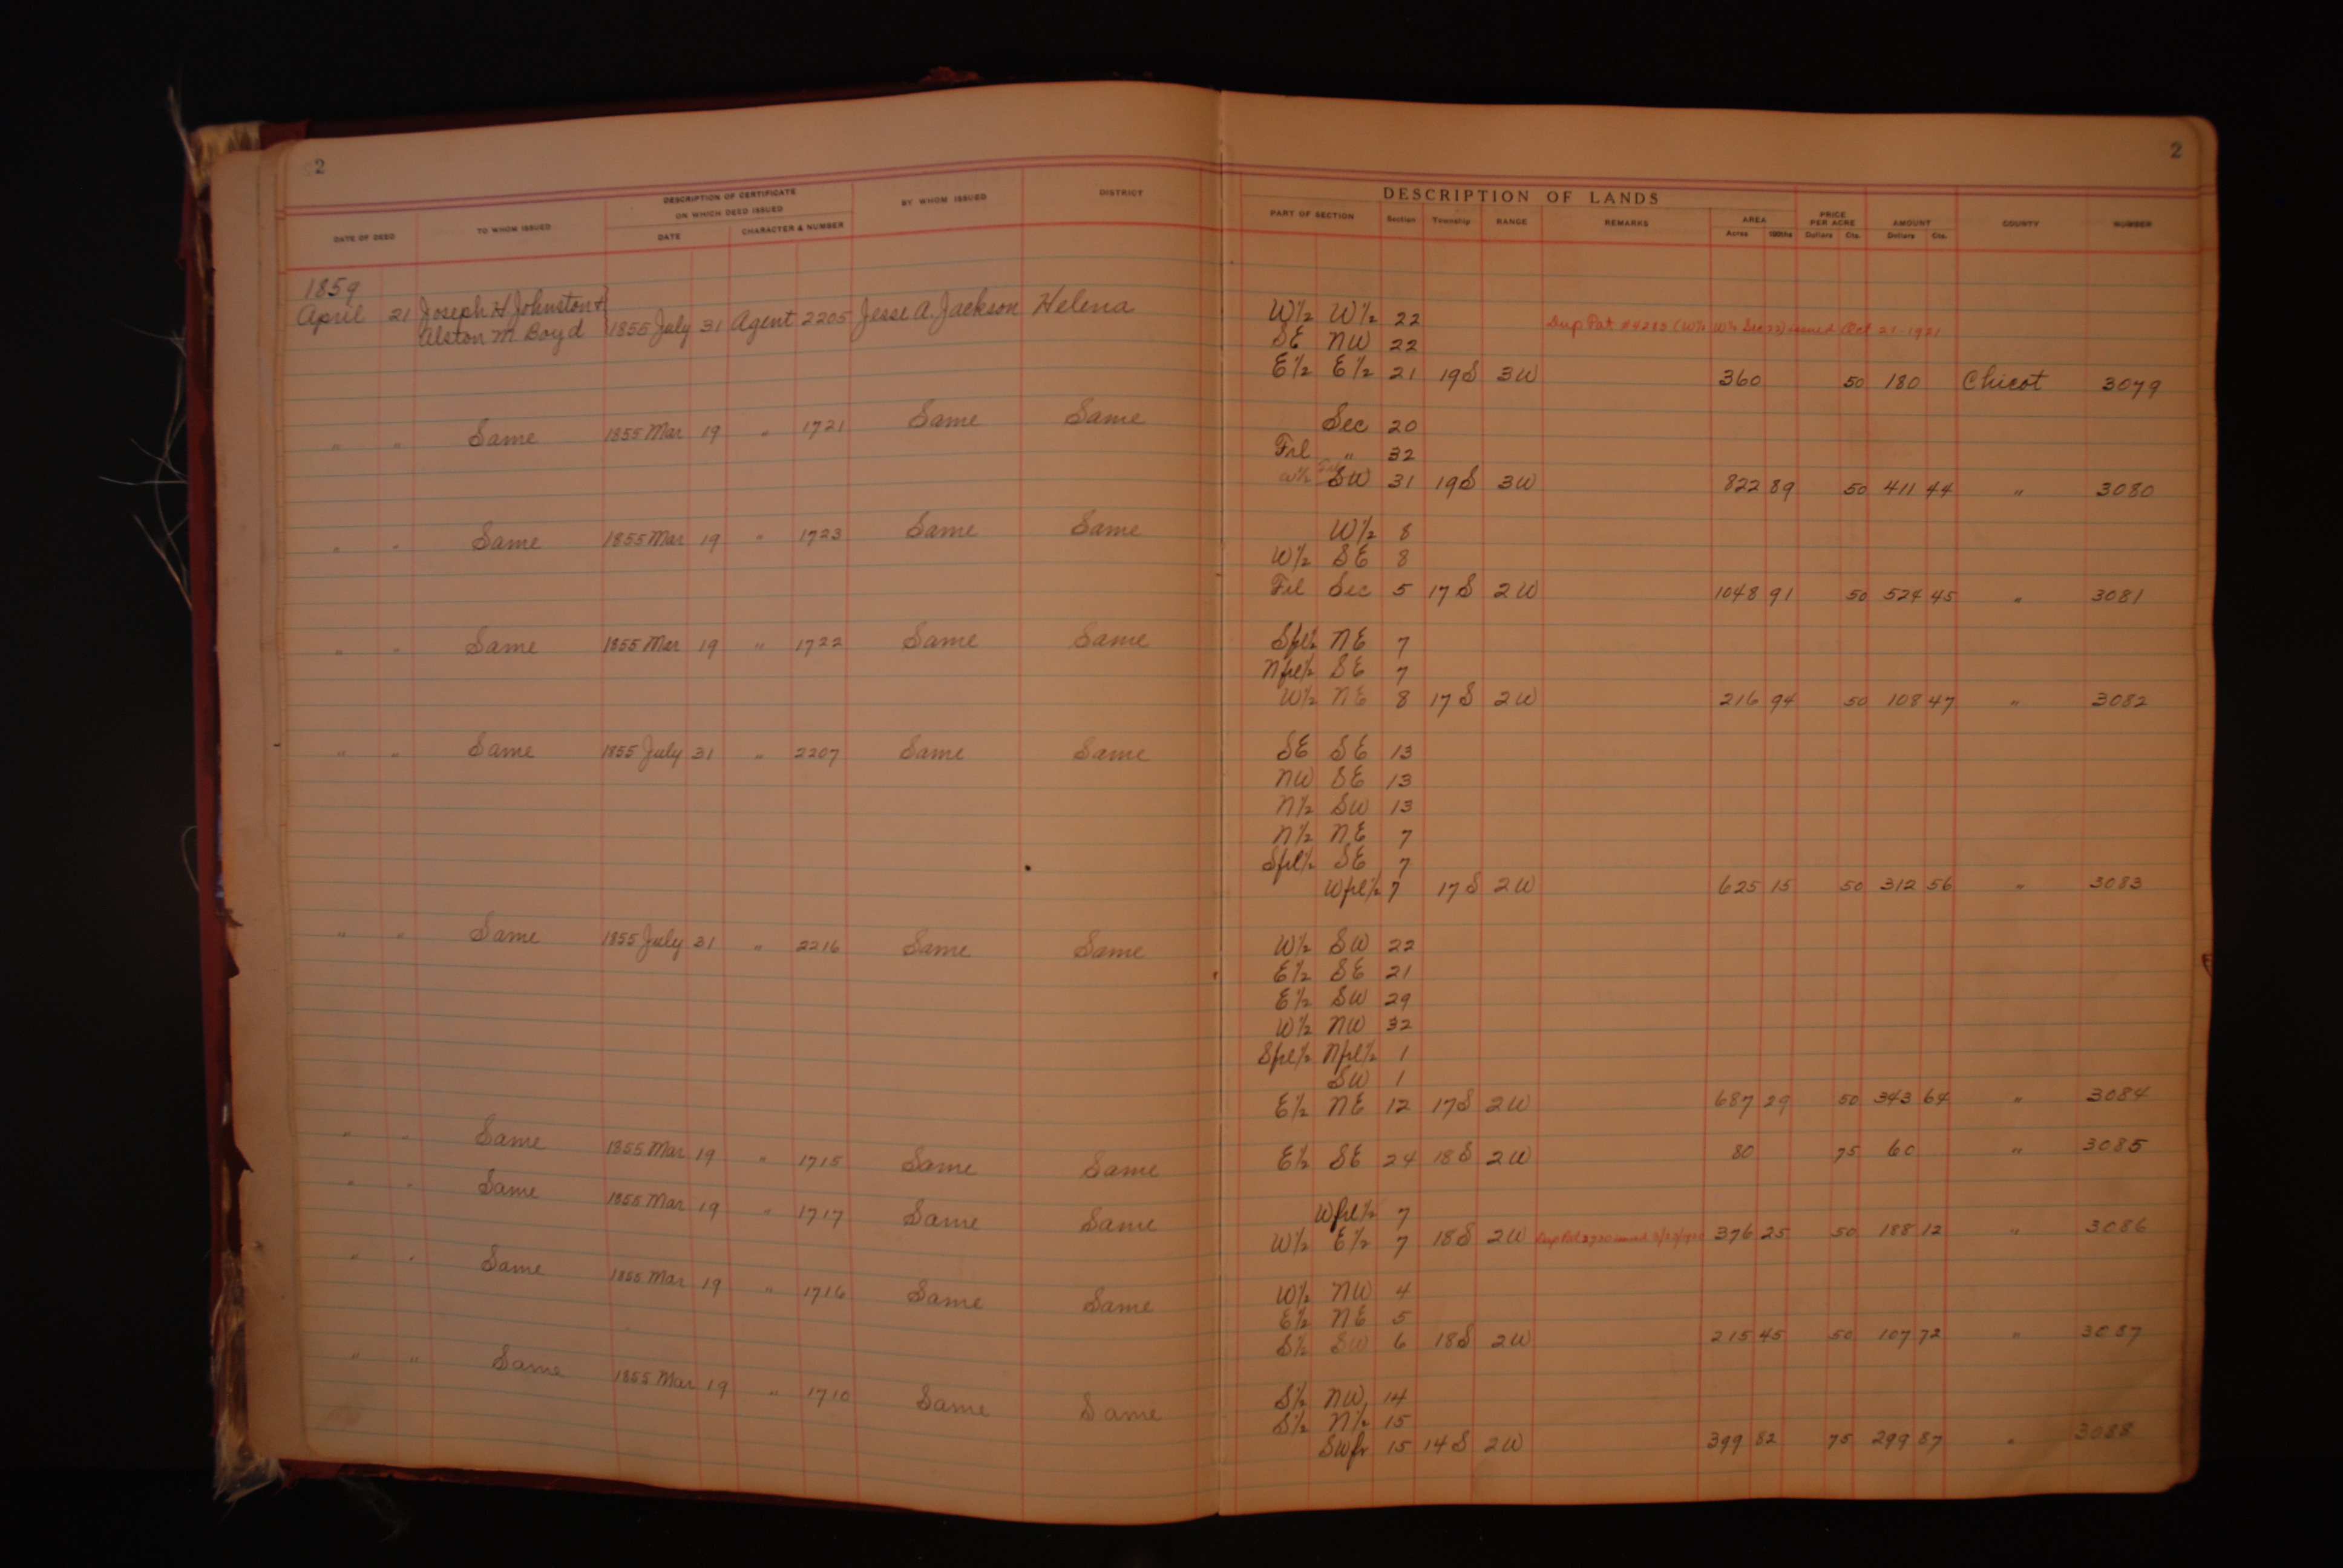 2 2
DESCRIPTION OF CERTIFICATE
ON WHICH DEED ISSUED
DESCRIPTION OF LANDS
DATE OF DEED TO WHOM ISSUED DATE CHARACTER & NUMBER BY WHOM ISSUED DISTRICT PART OF SECTION Section Township RANGE REMARKS AREA Acres 100ths PRICE PER ACRE Dollars Cts. AMOUNT Dollars Cts. COUNTY NUMBER
1859
April 21 Joseph H Johnston & Alston M Boyd 1855 July 31 Agent 2205 Jesse A. Jackson Helena W½ W½ 22 Dup Pat #4283 (W½ W½ Sec 22) issued Oct 21-1921
SE NW 22
E½ E½ 21 19S 3W 360 50 180 Chicot 3079
" " Same 1855 Mar 19 " 1721 Same Same Sec 20
Frl " 32
W½ SW 31 19S 3W 822 89 50 411 44 " 3080
" " Same 1855 Mar 19 " 1723 Same Same W½ 8
W½ SE 8
Frl Sec 5 17S 2W 1048 91 50 524 45 " 3081
" " Same 1855 Mar 19 " 1722 Same Same Sfrl½ NE 7
Nfrl½ SE 7
W½ NE 8 17S 2W 216 94 50 108 47 " 3082
" " Same 1855 July 31 " 2207 Same Same SE SE 13
NW SE 13
N½ SW 13
N½ NE 7
Sfrl½ SE 7
Wfrl½ 7 17S 2W 625 15 50 312 56 " 3083
" " Same 1855 July 31 " 2216 Same Same W½ SW 22
E½ SE 21
E½ SW 29
W½ NW 32
Sfrl½ Nfrl½ 1
SW 1
E½ NE 12 17S 2W 687 29 50 343 64 " 3084
" " Same 1855 Mar 19 " 1715 Same Same E½ SE 24 18S 2W 80 75 60 " 3085
" " Same 1855 Mar 19 " 1717 Same Same Wfrl½ 7
W½ E½ 7 18S 2W Dup Pat issued 376 25 50 188 12 " 3086
" " Same 1855 Mar 19 " 1716 Same Same W½ NW 4
E½ NE 5
S½ SW 6 18S 2W 215 45 50 107 72 " 3087
" " Same 1855 Mar 19 " 1710 Same Same S½ NW 14
S½ N½ 15
SWfr 15 14S 2W 399 82 75 299 87 " 3088